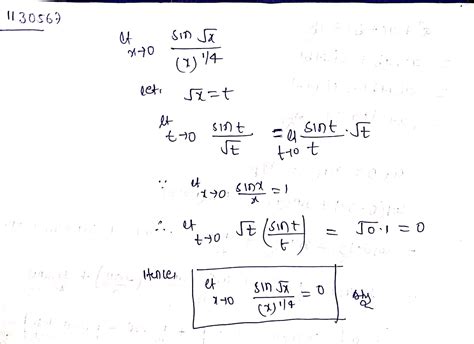 1130567
lt x→0 sin √x / (x)^1/4
let, √x = t
lt t→0 sint / √t = lt t→0 sint / t · √t
∵ lt x→0 sinx / x = 1
∴ lt t→0 √t (sint / t) = √0·1 = 0
Hence, lt x→0 sin √x / (x)^1/4 = 0